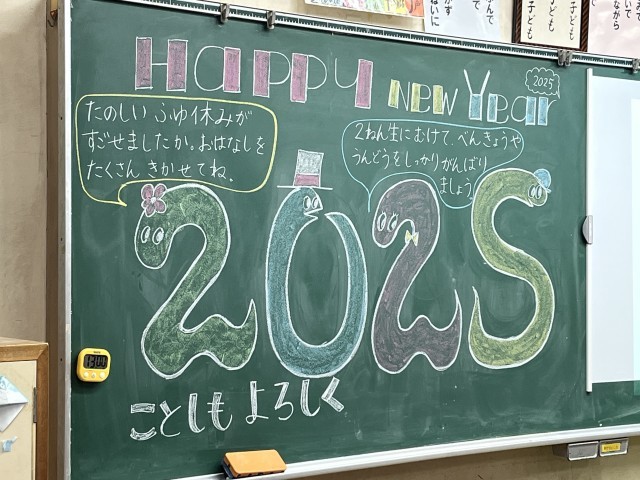 HAPPY NEW Year
2025
たのしい ふゆ休みが
すごせましたか。おはなしを
たくさん きかせてね。
2ねん生にむけて、べんきょうや
うんどうをしっかりがんばり
ましょう
2025
ことしも よろしく